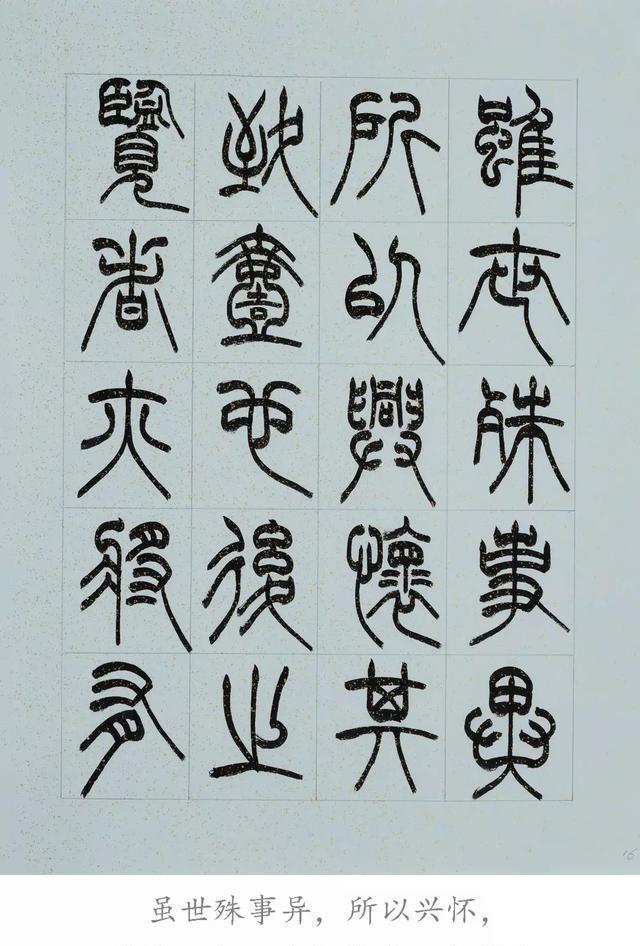 雖世殊事異
所以興懷其
致壹也後之
覽者亦將有
虽世殊事异，所以兴怀，